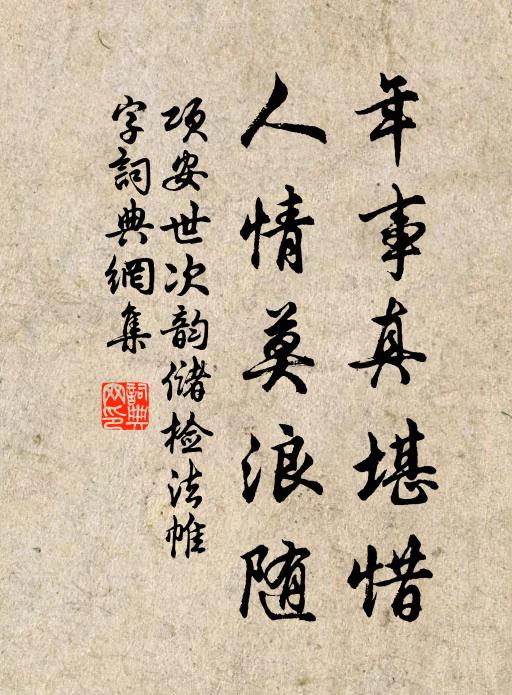 年事真堪惜
人情莫浪随
项安世次韵储检法帷
字詞典網集
詞典網印